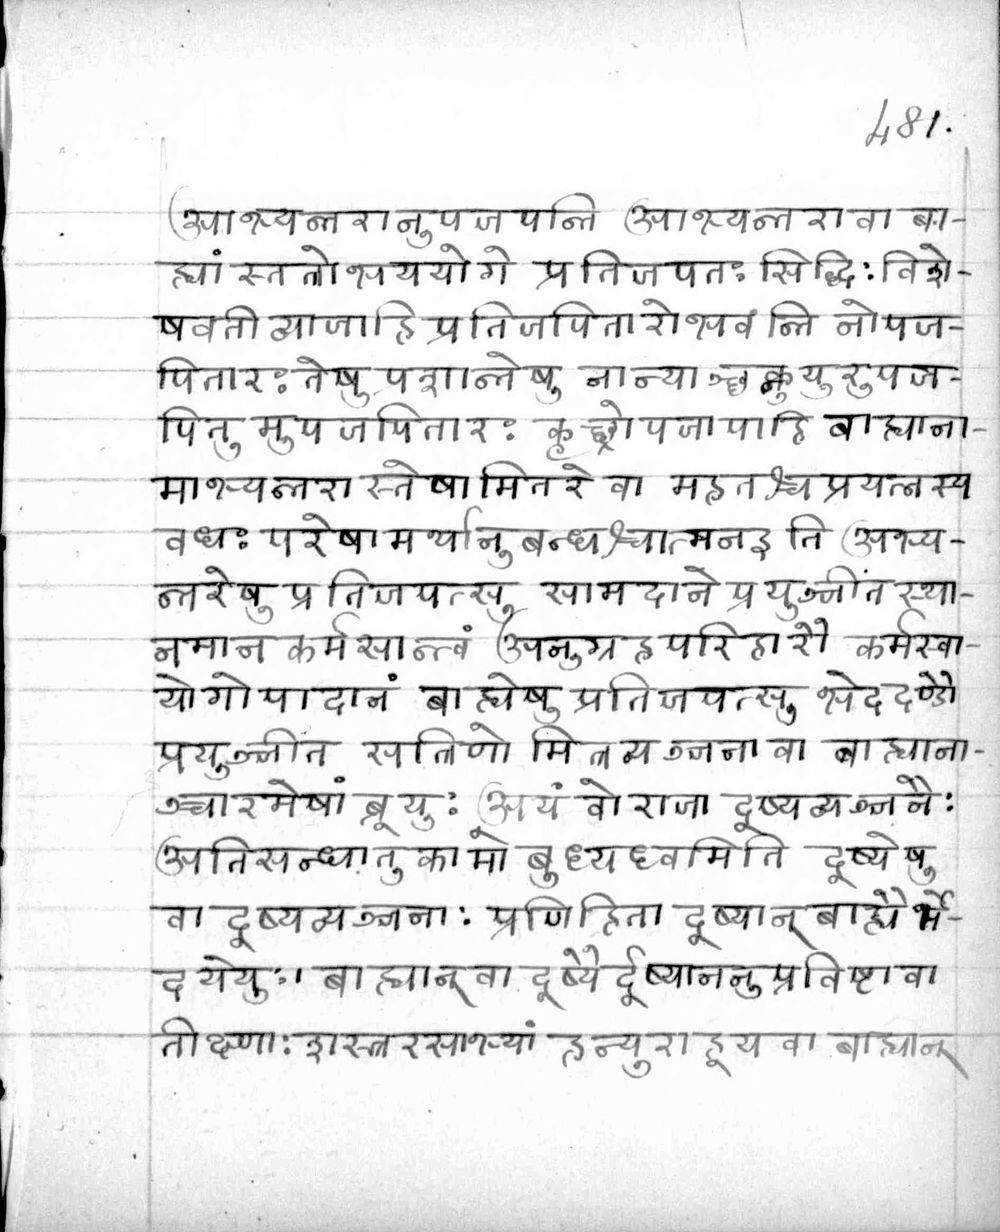 481.
आभ्यन्तरानुपजपन्ति आभ्यन्तरा वा बा-
ह्यांस्ततोभययोगे प्रतिजपतः सिद्धिः विशे-
षवती व्याजाहि प्रतिजपितारोभवन्ति नोपज-
पितारः तेषु प्रशान्तेषु नान्याञ्छक्नुयुरुपज-
पितुमुपजपितारः कृच्छ्रोपजापाहि बाह्याना-
माभ्यन्तरास्तेषामितरे वा महतश्च प्रयत्नस्य
वधः परेषामर्थानुबन्धश्चात्मनइति अभ्य-
न्तरेषु प्रतिजपत्सु सामदाने प्रयुञ्जीत स्था-
नमान कर्मसान्त्वं अनुग्रहपरिहारौ कर्मस्वा-
योगोपादानं बाह्येषु प्रतिजपत्सु भेददण्डौ
प्रयुञ्जीत सत्रिणो मित्रव्यञ्जना वा बाह्याना-
ञ्चारमेषां ब्रूयुः अयं वो राजा दूष्यव्यञ्जनैः
अतिसन्धातुकामो बुध्यध्वमिति दूष्येषु
वा दूष्यव्यञ्जनाः प्रणिहिता दूष्यान् बाह्यैर्भे-
दयेयुः। बाह्यान् वा दूष्यैर्दूष्याननुप्रविष्टा वा
तीक्ष्णाः शस्त्ररसाभ्यां हन्युराहूय वा बाह्यान्